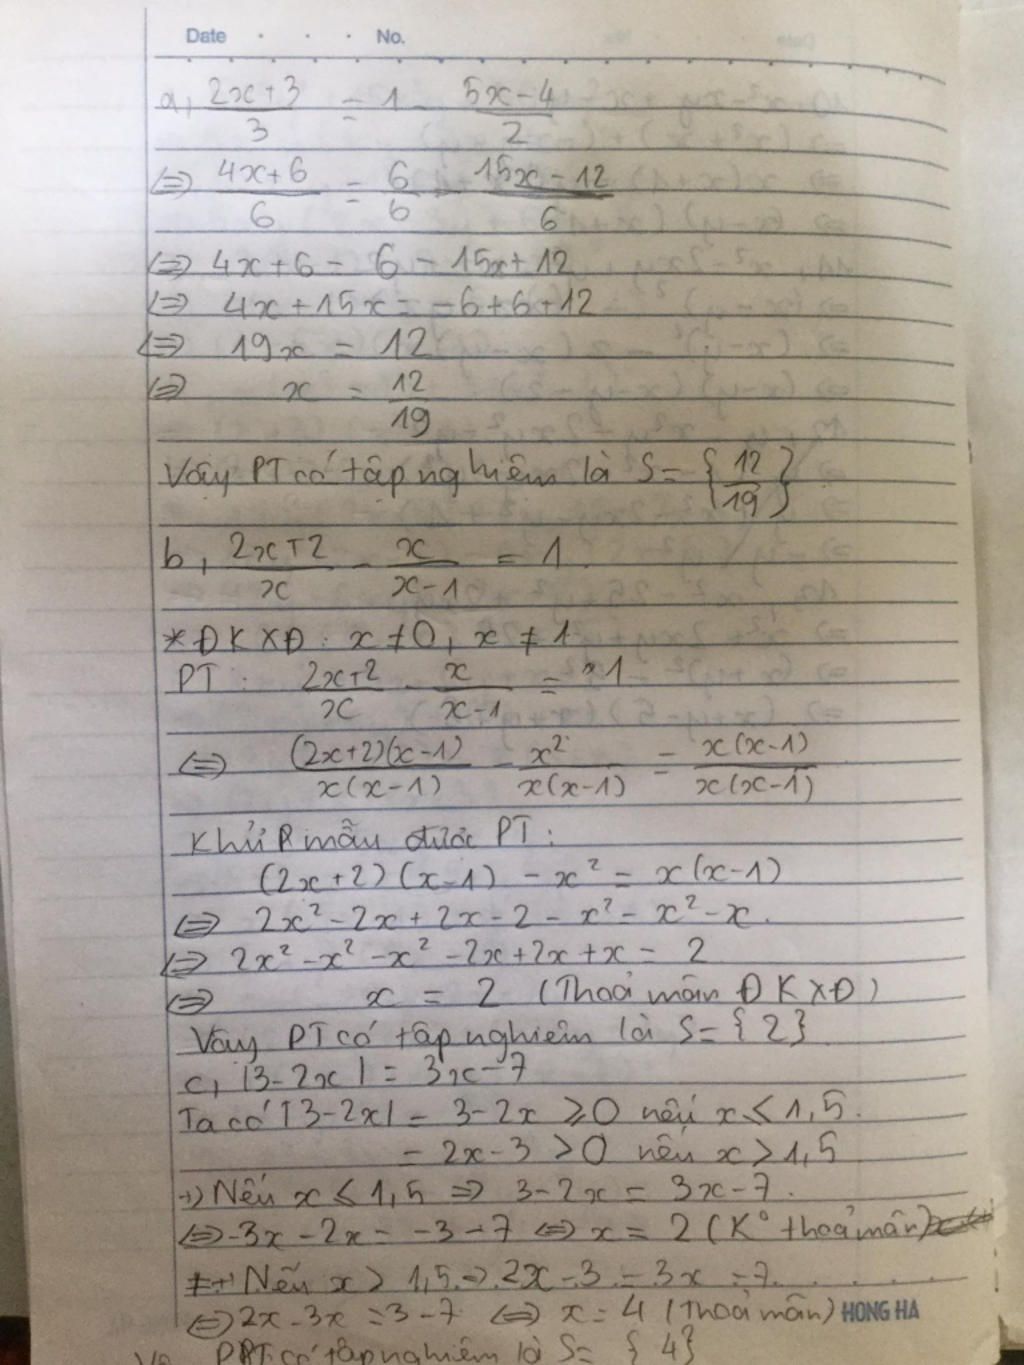 Date . . . No.
a, \frac{2x+3}{3} = 1 - \frac{5x-4}{2}
⇔ \frac{4x+6}{6} = \frac{6}{6} - \frac{15x-12}{6}
⇔ 4x+6 = 6 - 15x+12
⇔ 4x+15x = -6+6+12
⇔ 19x = 12
⇔ x = \frac{12}{19}
Vậy PT có tập nghiệm là S = {\frac{12}{19}}
b, \frac{2x+2}{x} - \frac{x}{x-1} = 1
* ĐKXĐ: x ≠ 0, x ≠ 1
PT: \frac{2x+2}{x} - \frac{x}{x-1} = 1
⇔ \frac{(2x+2)(x-1)}{x(x-1)} - \frac{x^2}{x(x-1)} = \frac{x(x-1)}{x(x-1)}
Khử mẫu được PT:
(2x+2)(x-1) - x² = x(x-1)
⇔ 2x² - 2x + 2x - 2 - x² = x² - x.
⇔ 2x² - x² - x² - 2x + 2x + x = 2
⇔ x = 2 (Thoả mãn ĐKXĐ)
Vậy PT có tập nghiệm là S = {2}
c, |3-2x| = 3x-7
Ta có |3-2x| = 3-2x ≥ 0 nếu x ≤ 1,5.
= 2x-3 > 0 nếu x > 1,5
+) Nếu x ≤ 1,5 ⇒ 3-2x = 3x-7.
⇔ -3x - 2x = -3 - 7 ⇔ x = 2 (K° thoả mãn)
+) Nếu x > 1,5 ⇒ 2x-3 = 3x-7
⇔ 2x-3x = 3-7 ⇔ x = 4 (Thoả mãn) HONG HA
PT có tập nghiệm là S = {4}